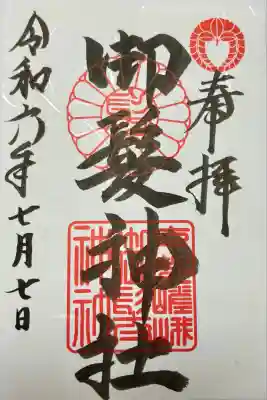 奉拝
御髪神社
令和六年七月七日